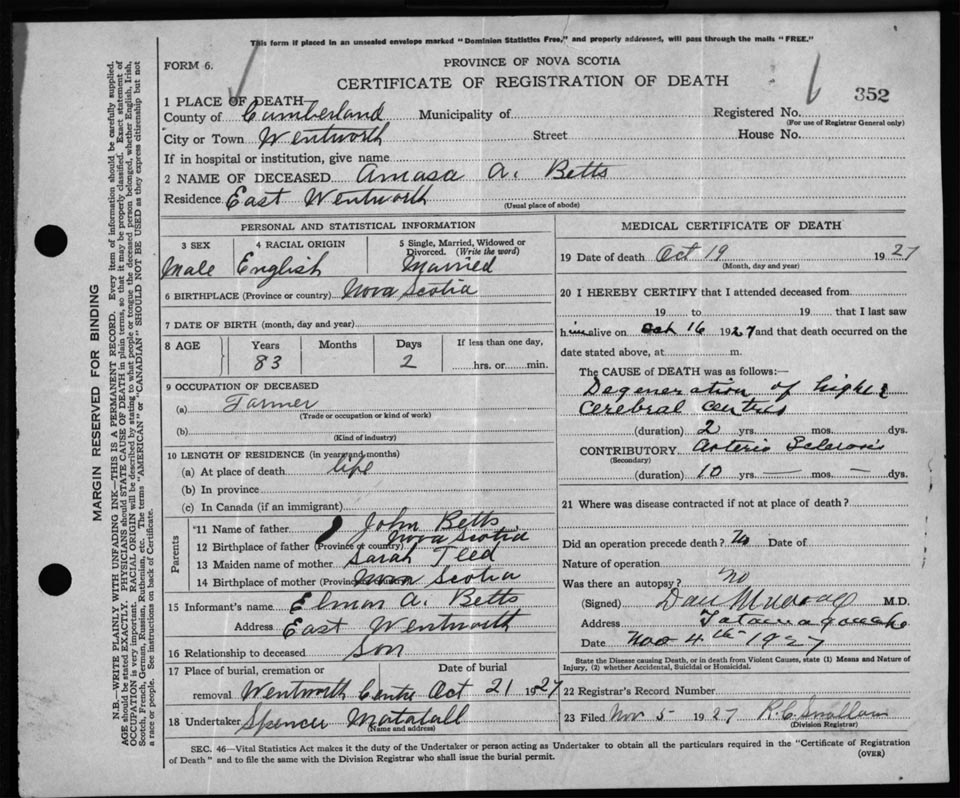 This form if placed in an unsealed envelope marked "Dominion Statistics Free," and properly addressed, will pass through the mails "FREE."
FORM 6.
PROVINCE OF NOVA SCOTIA
CERTIFICATE OF REGISTRATION OF DEATH
352
1 PLACE OF DEATH—
County of Cumberland Municipality of Registered No.
(For use of Registrar General only)
City or Town Wentworth Street House No.
If in hospital or institution, give name
2 NAME OF DECEASED Amasa A. Betts
Residence East Wentworth
(Usual place of abode)
PERSONAL AND STATISTICAL INFORMATION
3 SEX 4 RACIAL ORIGIN 5 Single, Married, Widowed or Divorced. (Write the word)
Male English Married
6 BIRTHPLACE (Province or country) Nova Scotia
7 DATE OF BIRTH (month, day and year)
8 AGE Years Months Days If less than one day,
83 2 hrs. or min.
9 OCCUPATION OF DECEASED
(a) Farmer
(Trade or occupation or kind of work)
(b)
(Kind of industry)
10 LENGTH OF RESIDENCE (in years and months)
(a) At place of death life
(b) In province
(c) In Canada (if an immigrant)
Parents
11 Name of father John Betts
12 Birthplace of father (Province or country) Nova Scotia
13 Maiden name of mother Sarah Teed
14 Birthplace of mother (Province Nova Scotia
15 Informant's name Elmor A. Betts
Address East Wentworth
16 Relationship to deceased Son
17 Place of burial, cremation or Date of burial
removal Wentworth Centre Oct 21 1927
18 Undertaker Spencer Matatall
(Name and address)
MEDICAL CERTIFICATE OF DEATH
19 Date of death Oct 19 1927
(Month, day and year)
20 I HEREBY CERTIFY that I attended deceased from
19 to 19 that I last saw
him alive on Oct 16 1927 and that death occurred on the
date stated above, at m.
The CAUSE of DEATH was as follows:—
Degeneration of higher
cerebral centres
(duration) 2 yrs. mos. dys.
CONTRIBUTORY Arterio Sclerosis
(Secondary)
(duration) 10 yrs. — mos. — dys.
21 Where was disease contracted if not at place of death?
Did an operation precede death? No Date of
Nature of operation
Was there an autopsy? no
(Signed) Dan M.D.
Address Tatamagouche
Date Nov 4th 1927
State the Disease causing Death, or in death from Violent Causes, state (1) Means and Nature of
Injury, (2) whether Accidental, Suicidal or Homicidal.
22 Registrar's Record Number
23 Filed Nov 5 1927 R. C.
(Division Registrar)
SEC. 46—Vital Statistics Act makes it the duty of the Undertaker or person acting as Undertaker to obtain all the particulars required in the "Certificate of Registration
of Death" and to file the same with the Division Registrar who shall issue the burial permit.
(OVER)
MARGIN RESERVED FOR BINDING
N.B.—WRITE PLAINLY WITH UNFADING INK—THIS IS A PERMANENT RECORD. Every item of information should be carefully supplied.
AGE should be stated EXACTLY. PHYSICIANS should STATE CAUSE OF DEATH in plain terms, so that it may be properly classified. Exact statement of
OCCUPATION is very important. RACIAL ORIGIN will be described by stating to what people or tongue the deceased person belonged, whether English, Irish,
Scotch, French, German, Russian, Ruthenian, etc. The terms "AMERICAN" or "CANADIAN" SHOULD NOT BE USED as they express citizenship but not
a race or people. See instructions on back of Certificate.